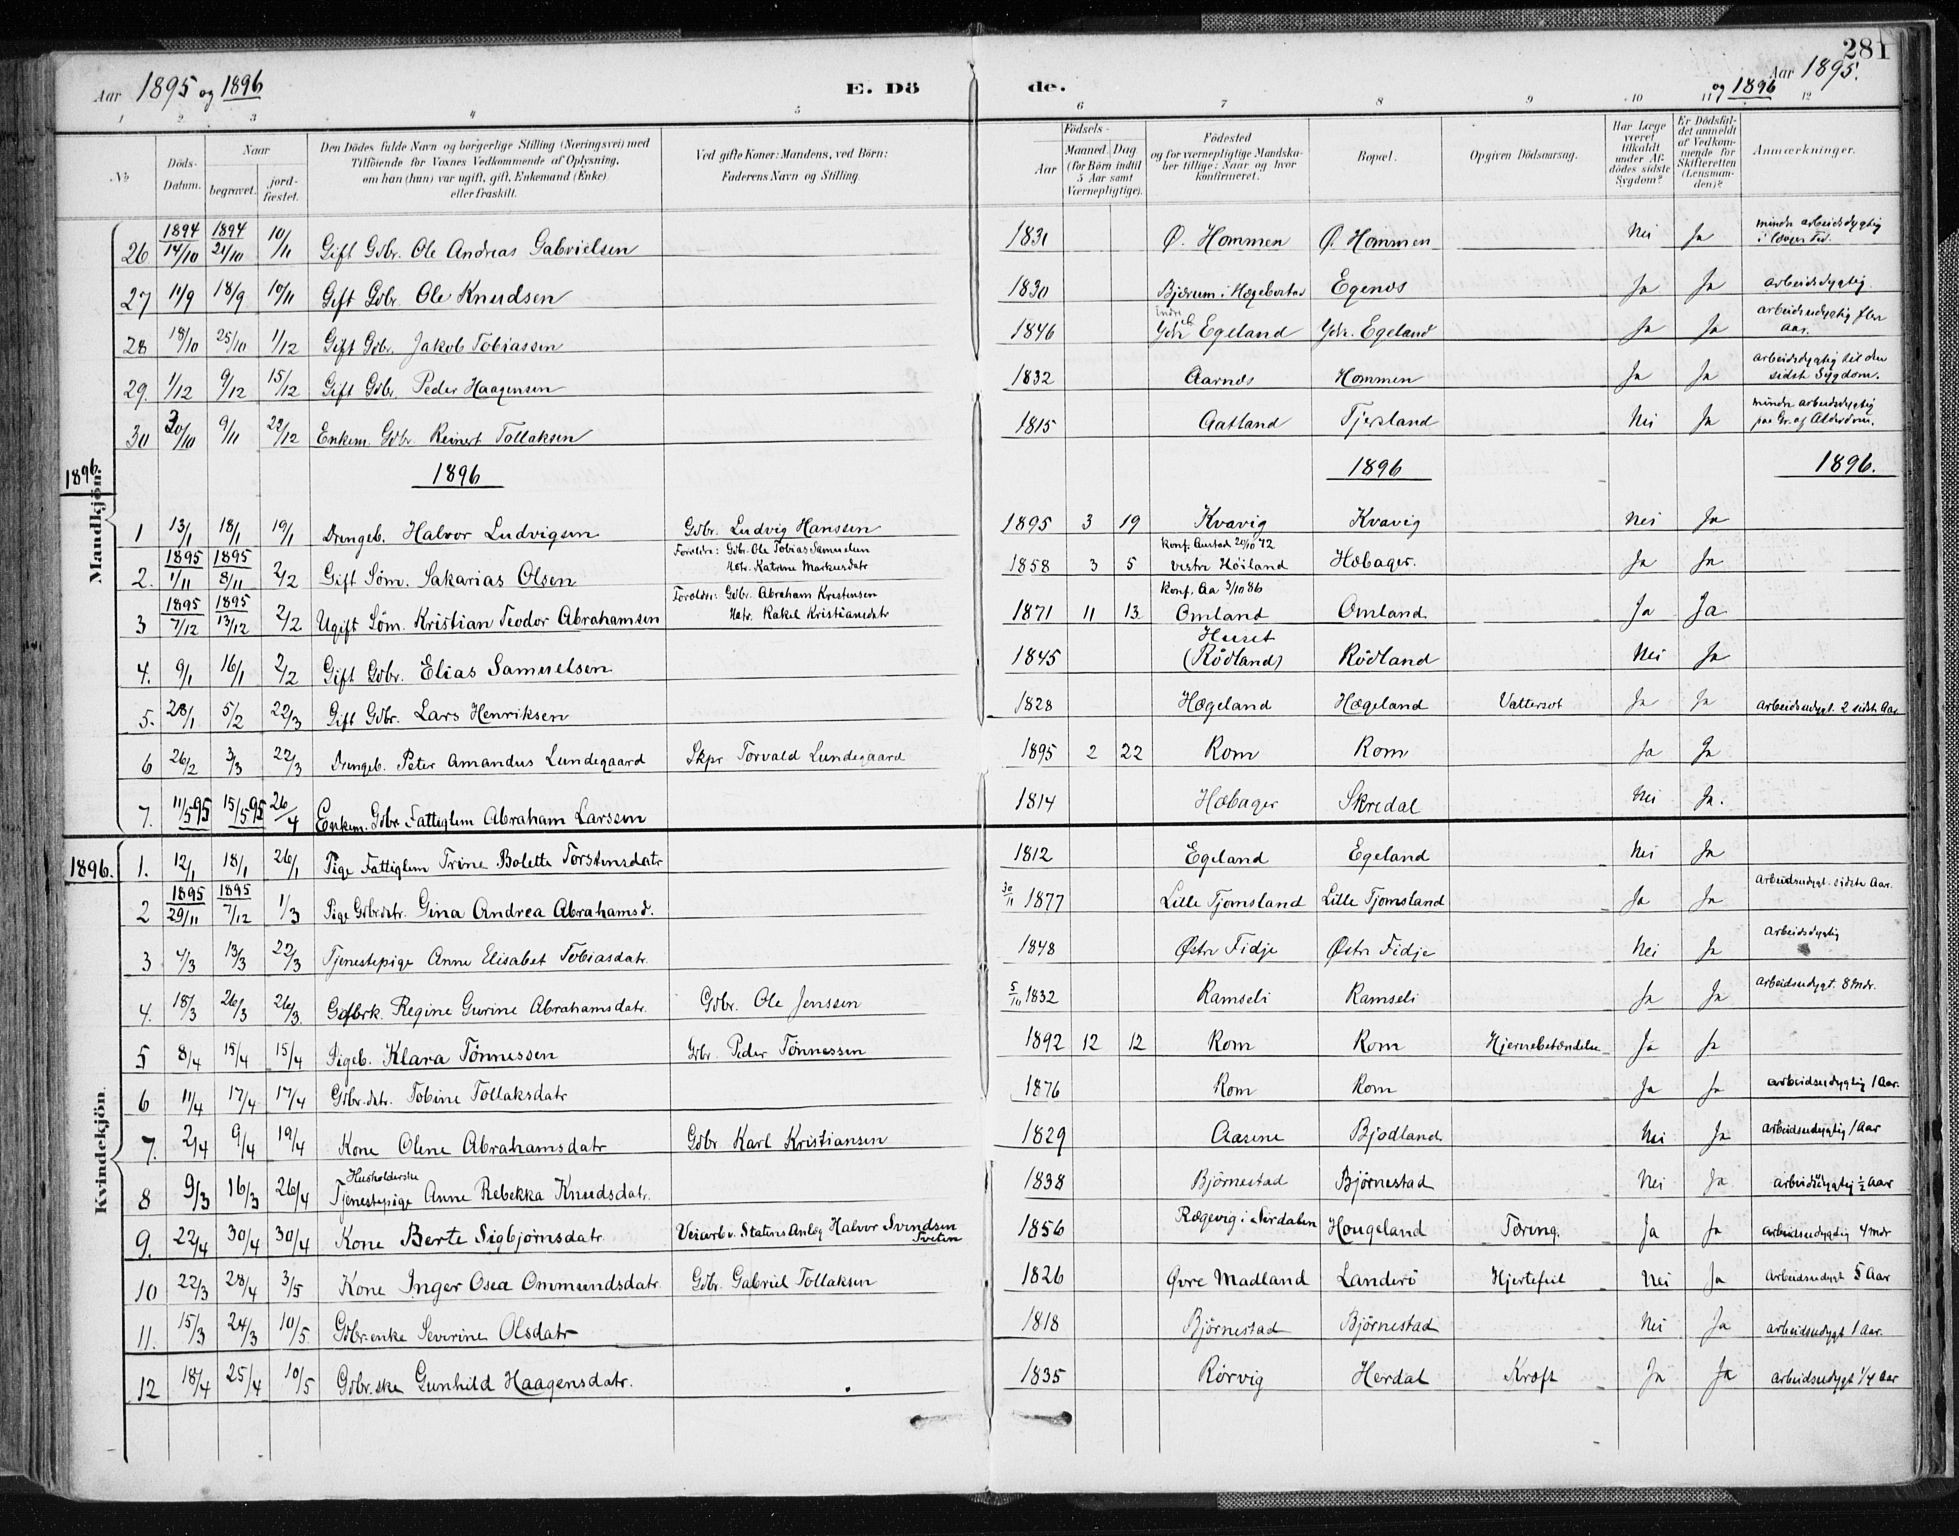 281
Aar 1895 og 1896 E. Dö de. Aar 1895.
og 1896
1 2 3 4 5 6 7 8 9 10 11 12
No Döds-Datum. Naar begravet. jord-fæstet. Den Dödes fulde Navn og borgerlige Stilling (Næringsvei) med Tilföiende for Voxnes Vedkommende af Oplysning, om han (hun) var ugift, gift, Enkemand (Enke) eller fraskilt. Ved gifte Koner: Mandens, ved Börn: Faderens Navn og Stilling. Födsels- Aar Maaned. Dag (for Börn indtil 5 Aar samt Værnepligtige). Födested og for værnepligtige Mandskaber tillige: Naar og hvor konfirmeret. Bopæl. Opgiven Dödsaarsag. Har Læge været tilkaldt under Afdödes sidste Sygdom? Er Dödsfaldet anmeldt af Vedkommende for Skifteretten (Lensmanden)? Anmærkninger.
Mandkjön.
26 1894 14/10 1894 21/10 10/11 Gift Gdbr. Ole Andreas Gabrielsen 1831 Ø. Hommen Ø. Hommen Nei Ja mindre arbeidsdygtig i længer Tid.
27 11/9 18/9 10/11 Gift Gdbr. Ole Knudsen 1830 Bjærum i Hægebostad Egenes Ja Ja arbeidsdygtig
28 18/10 25/10 1/12 Gift Gdbr. Jakob Tobiassen 1846 Egeland Ydr. Egeland Ja Ja arbeidsudygtig fler Aar.
29. 1/12 9/12 15/12 Gift Gdbr. Peder Haagensen 1832 Aarnes Hommen Ja Ja arbeidsdygtig til den sidste Sygdom.
30 30/10 9/11 22/12 Enkem. Gdbr. Reinert Tollaksen 1815 Aatland Tjersland Nei Ja mindre arbeidsdygtig paa Gr. af Alderdom.
1896. 1896 1896 1896.
1 13/1 18/1 19/1 Drengeb. Halvor Ludvigsen Gdbr. Ludvig Hanssen 1895 3 19 Kvavig Kvavig Nei Ja
2. 1895 1/11 1895 8/11 2/2 Gift Söm. Sakarias Olsen Foreldre: Gdbr. Ole Tobias Samuelsen Hstr. Katrine Markusdatr 1858 3 5 Konf. Austad 20/10 72 vestre Höiland Hæbager. Ja Ja
3 1895 7/12 1895 13/12 2/2 Ugift Söm. Kristian Teodor Abrahamsen Foreldre: Gdbr. Abraham Kristensen Hstr. Rakel Kristiansdatr 1871 11 13 Konf. Aa 3/10 86 Omland Omland Ja Ja
4. 9/1 16/1 2/2 Gift Gdbr. Elias Samuelsen 1845 Huset (Rödland) Rödland Nei Ja
5. 28/1 5/2 22/3 Gift Gdbr. Lars Henriksen 1828 Hægeland Hægeland Vattersot Ja Ja arbeidsudygt. 2 sidste Aar
6 26/2 3/3 22/3 Drengeb. Peter Amandus Lundegaard Skpr Torvald Lundegaard 1895 2 22 Rom Rom Ja Ja
7. 11/5 95 15/5 95 26/4 Enkem. Gdbr Fattiglem Abraham Larssen 1814 Hæbager Skredal Nei Ja.
1896.
Kvindekjön.
1. 12/1 18/1 26/1 Pige Fattiglem Trine Bolette Torstensdatr 1812 Egeland Egeland Nei Ja
2 1895 29/11 1895 7/12 1/3 Pige Gdbr.datr. Gina Andrea Abrahamsd. 30/11 1877 Lille Tjomsland Lille Tjomsland Ja Ja arbeidsudygt. sidste Aar.
3 4/3 13/3 22/3 Tjenestepige Anne Elisabet Tobiasdatr. 1848 Østre Fidje Østre Fidje Nei Ja arbeidsdygtig
4. 18/3 26/3 26/3. Gdbrk. Regine Gurine Abrahamsdatr. Gdbr. Ole Jenssen 5/10 1832 Ramseli Ramseli Ja Ja arbeidsudygt. 8 Mdr.
5 8/4 15/4 15/4 Pigeb. Klara Tönnessen Gdbr. Peder Tönnessen 1892 12 12 Rom Rom Hjernebetændelse Ja Ja
6 11/4 17/4 17/4 Gdbr.datr. Tobine Tollaksdatr 1876 Rom Rom Ja Ja arbeidsudygtig 1 Aar.
7. 2/4 9/4 19/4 Kone Olene Abrahamsdatr Gdbr Karl Kristiansen 1829 Aasene Bjodland Nei Ja arbeidsudygtig 1 Aar
8 9/3 16/3 26/4 Husholderske Tjenestepige Anne Rebekka Knudsdatr. 1838 Björnestad Björnestad Nei Ja arbeidsudygtig 1/2 Aar
9. 22/4 30/4 30/4 Kone Berte Sigbjörnsdatr. Veiarb v. Statens Anlæg Halvor Svindsen Tveiten 1856 Rægevig i Sirdalen Hougeland Tæring. Ja Ja arbeidsudygtig 4 Mdr
10 22/3 28/4 3/5 Kone Inger Osea Ommundsdatr. Gdbr. Gabriel Tollaksen 1826 Øvre Madland Landerö Hjertefeil Nei Ja arbeidsudygt 5 Aar
11. 15/3 24/3 10/5 Gdbr.enke Severine Olsdatr 1818 Björnestad Björnestad Nei Ja arbeidsudygt 1 Aar.
12 18/4 25/4 10/5 Gdbr.ske Gunhild Haagensdatr. 1835 Rörvig Herdal Kræft Ja Ja arbeidsudygt 1/4 Aar